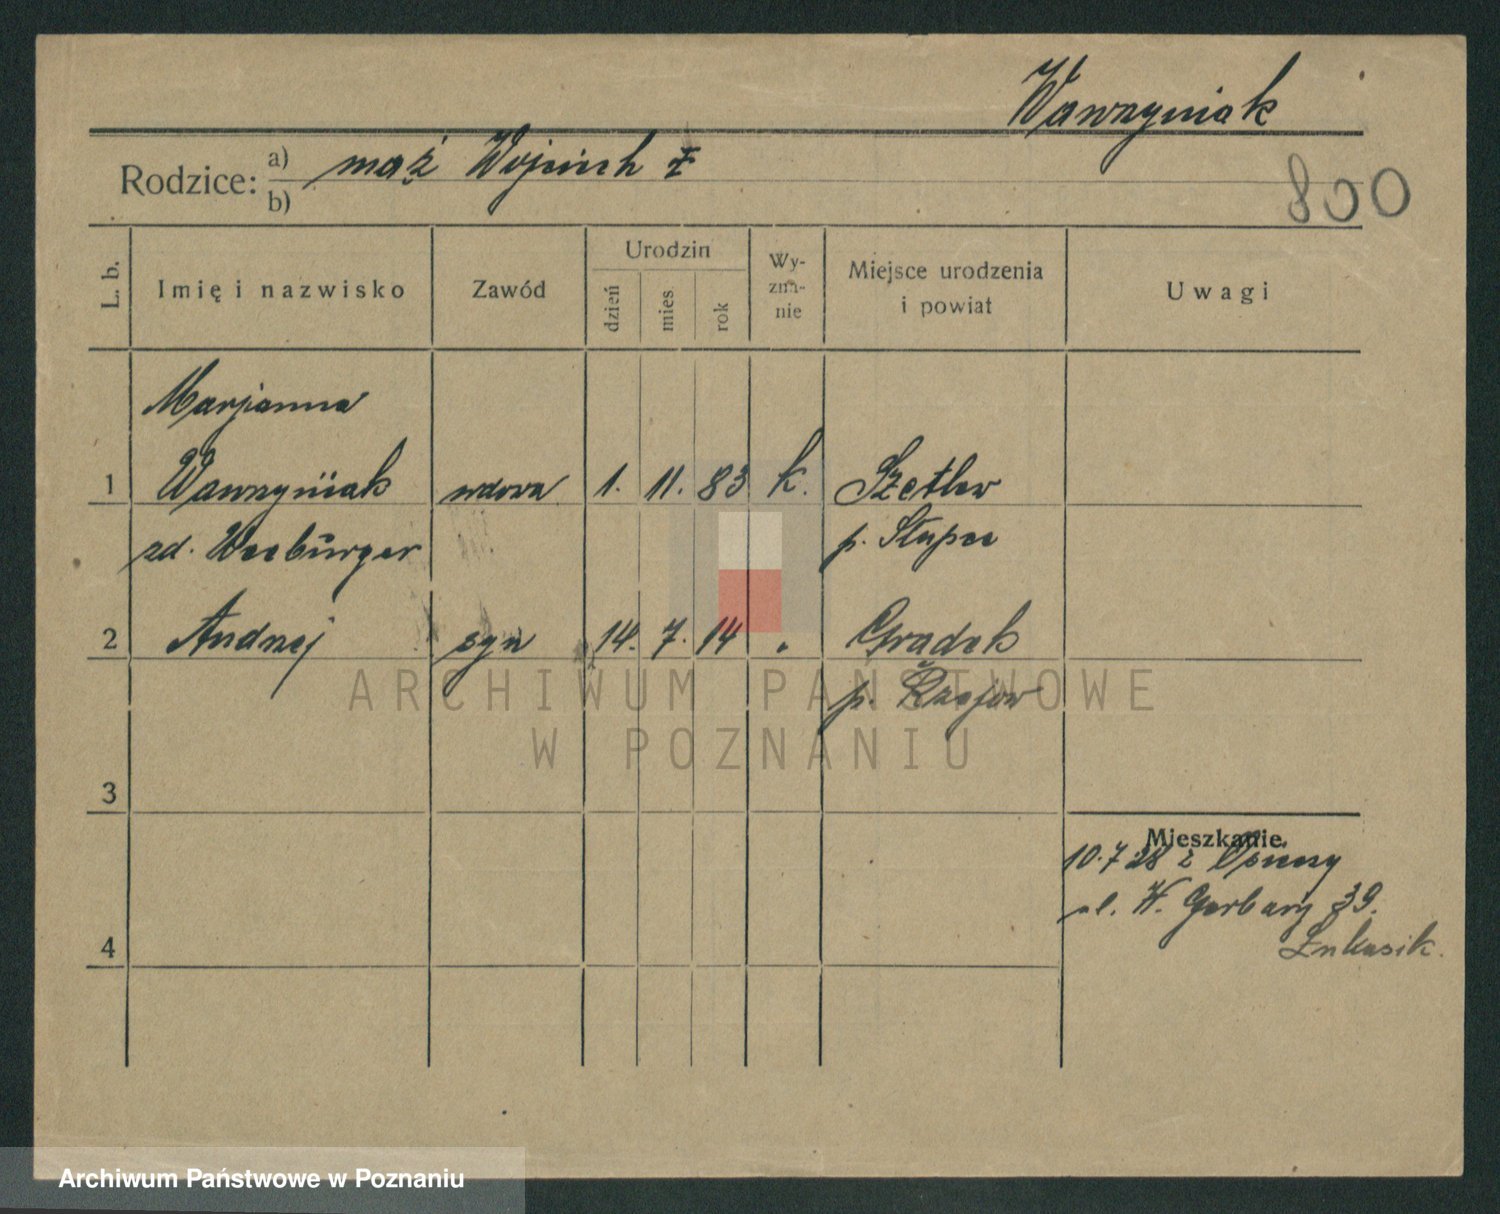 Wawrzyniak
Rodzice: a) mąż Wojciech
b)
800
L. b.
Imię i nazwisko
Zawód
Urodzin
dzień
mies.
rok
Wy-
zna-
nie
Miejsce urodzenia
i powiat
Uwagi
Marjanna
1 Wawrzyniak wdowa 1. 11. 83 k. Szetlew
zd. p. Słupca
2 Andrzej syn 14. 7. 14 " Gradek
p.
ARCHIWUM PAŃSTWOWE
W POZNANIU
3
Mieszkanie.
10.7 28 z
ul. W. Garbary 39.
4
Łukasik.
Archiwum Państwowe w Poznaniu